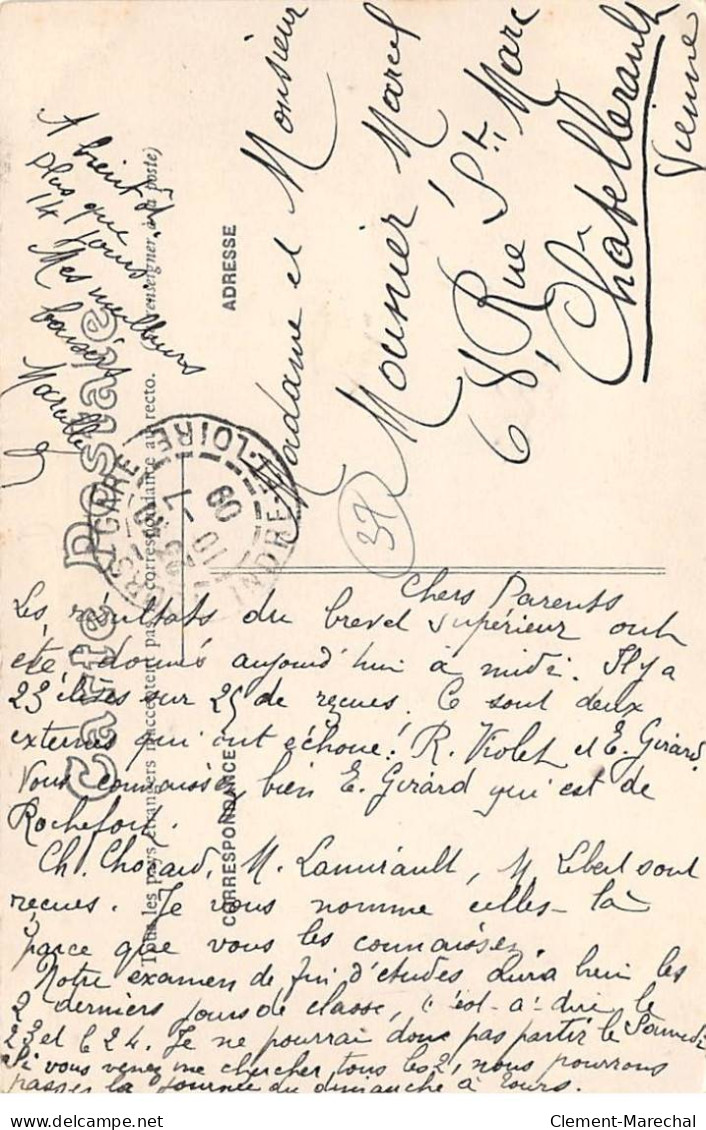 Carte Postale
Tous les pays étrangers n'acceptent pas la correspondance au recto. (Se renseigner à la poste)
CORRESPONDANCE
ADRESSE
Madame et Monsieur
Mounier Marcel
68, Rue St. Marc
Châtellerault
Vienne
TOURS-GARE
INDRE-ET-LOIRE
10-7
09
37
Chers Parents
Les résultats du brevet supérieur ont
été donnés aujourd'hui à midi. Il y a
23 élèves sur 25 de reçues. Ce sont deux
externes qui ont échoué! R. Violet et E. Girard.
Vous connaissez bien E. Girard qui est de
Rochefort.
Ch. Chozard, M. Lamirault, M. Lebert sont
reçues. Je vous nomme celles-là
parce que vous les connaissez.
Notre examen de fin d'études aura lieu les
2 derniers jours de classe, c'est-à-dire le
23 et le 24. Je ne pourrai donc pas partir le Samedi
Si vous venez me chercher tous les 2, nous pourrons
passer la journée du dimanche à Tours.
A bientôt.
plus que
14 jours
Mes meilleurs
baisers
Marcelle
Clement-Marechal